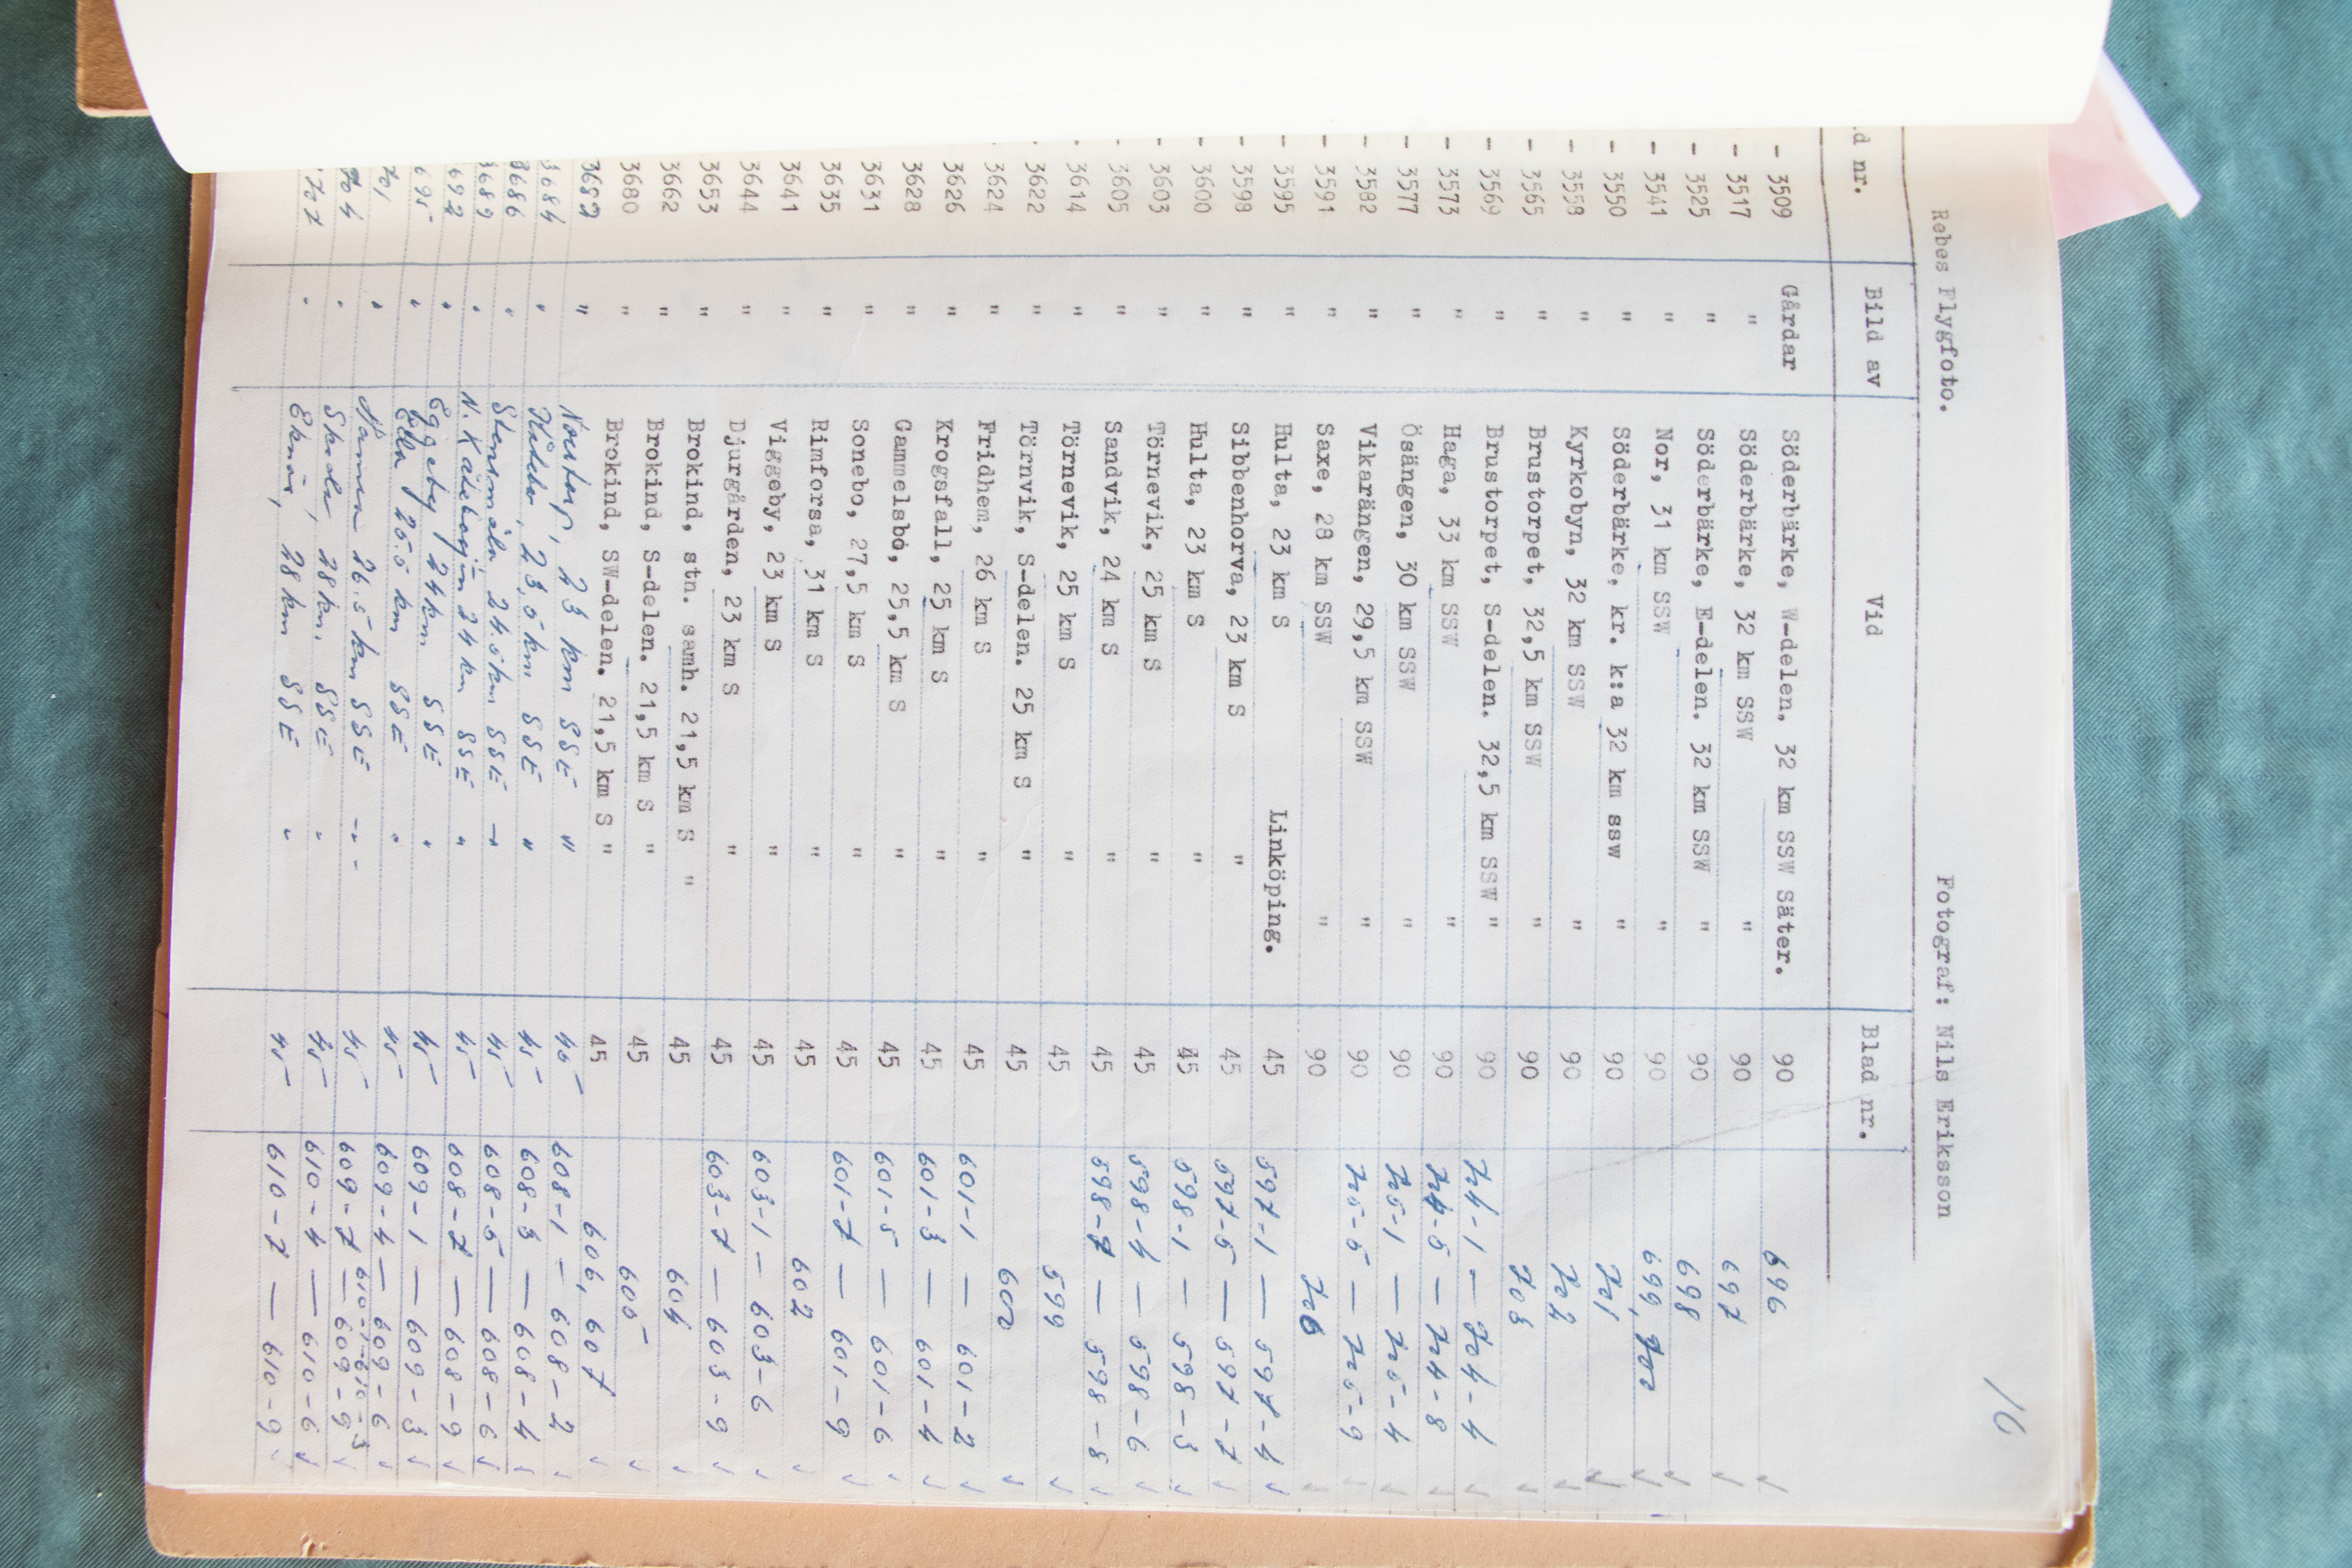 10
Rebes Flygfoto. Fotograf: Nils Eriksson
d nr. Bild av Vid Blad nr.
- 3509 Gårdar Söderbärke, W-delen. 32 km SSW Säter. 90 696
- 3517 " Söderbärke, 32 km SSW " 90 697
- 3525 " Söderbärke, E-delen. 32 km SSW " 90 698
- 3541 " Nor, 31 km SSW " 90 699, 700
- 3550 " Söderbärke, kr. k:a 32 km ssw " 90 701
- 3558 " Kyrkobyn, 32 km SSW " 90 702
- 3565 " Brustorpet, 32,5 km SSW " 90 703
- 3569 " Brustorpet, S-delen. 32,5 km SSW " 90 704-1 — 704-4
- 3573 " Haga, 33 km SSW " 90 704-5 — 704-8
- 3577 " Ösängen, 30 km SSW " 90 705-1 — 705-4
- 3582 " Vikarängen, 29,5 km SSW " 90 705-5 — 705-9
- 3591 " Saxe, 28 km SSW " 90 706
- 3595 " Hulta, 23 km S Linköping. 45 597-1 — 597-4
- 3598 " Sibbenhorva, 23 km S " 45 597-5 — 597-7
- 3600 " Hulta, 23 km S " 45 598-1 — 598-3
- 3603 " Törnevik, 25 km S " 45 598-4 — 598-6
- 3605 " Sandvik, 24 km S " 45 598-7 — 598-8
- 3614 " Törnevik, 25 km S " 45 599
- 3622 " Törnvik, S-delen. 25 km S " 45 600
- 3624 " Fridhem, 26 km S " 45 601-1 — 601-2
- 3626 " Krogsfall, 25 km S " 45 601-3 — 601-4
3628 " Gammelsbo, 25,5 km S " 45 601-5 — 601-6
3631 " Sonebo, 27,5 km S " 45 601-7 — 601-9
3635 " Rimforsa, 31 km S " 45 602
3641 " Viggeby, 23 km S " 45 603-1 — 603-6
3644 " Djurgården, 23 km S " 45 603-7 — 603-9
3653 " Brokind, stn. samh. 21,5 km S " 45 604
3662 " Brokind, S-delen. 21,5 km S " 45 605
3680 " Brokind, SW-delen. 21,5 km S " 45 606, 607
3682 " 23 km SSE " 45 608-1 — 608-2
3684 " 23,5 km SSE " 45 608-3 — 608-4
3686 " 24.5 km SSE " 45 608-5 — 608-6
3689 " N. 24 km SSE " 45 608-7 — 608-9
692 " Eggeby 24 km SSE " 45 609-1 — 609-3
695 " 25.5 km SSE " 45 609-4 — 609-6
701 " 26.5 km SSE " 45 609-7 — 609-9 610-1-610-3
704 " 28 km SSE " 45 610-4 — 610-6
707 " Eknäs, 28 km SSE " 45 610-7 — 610-9